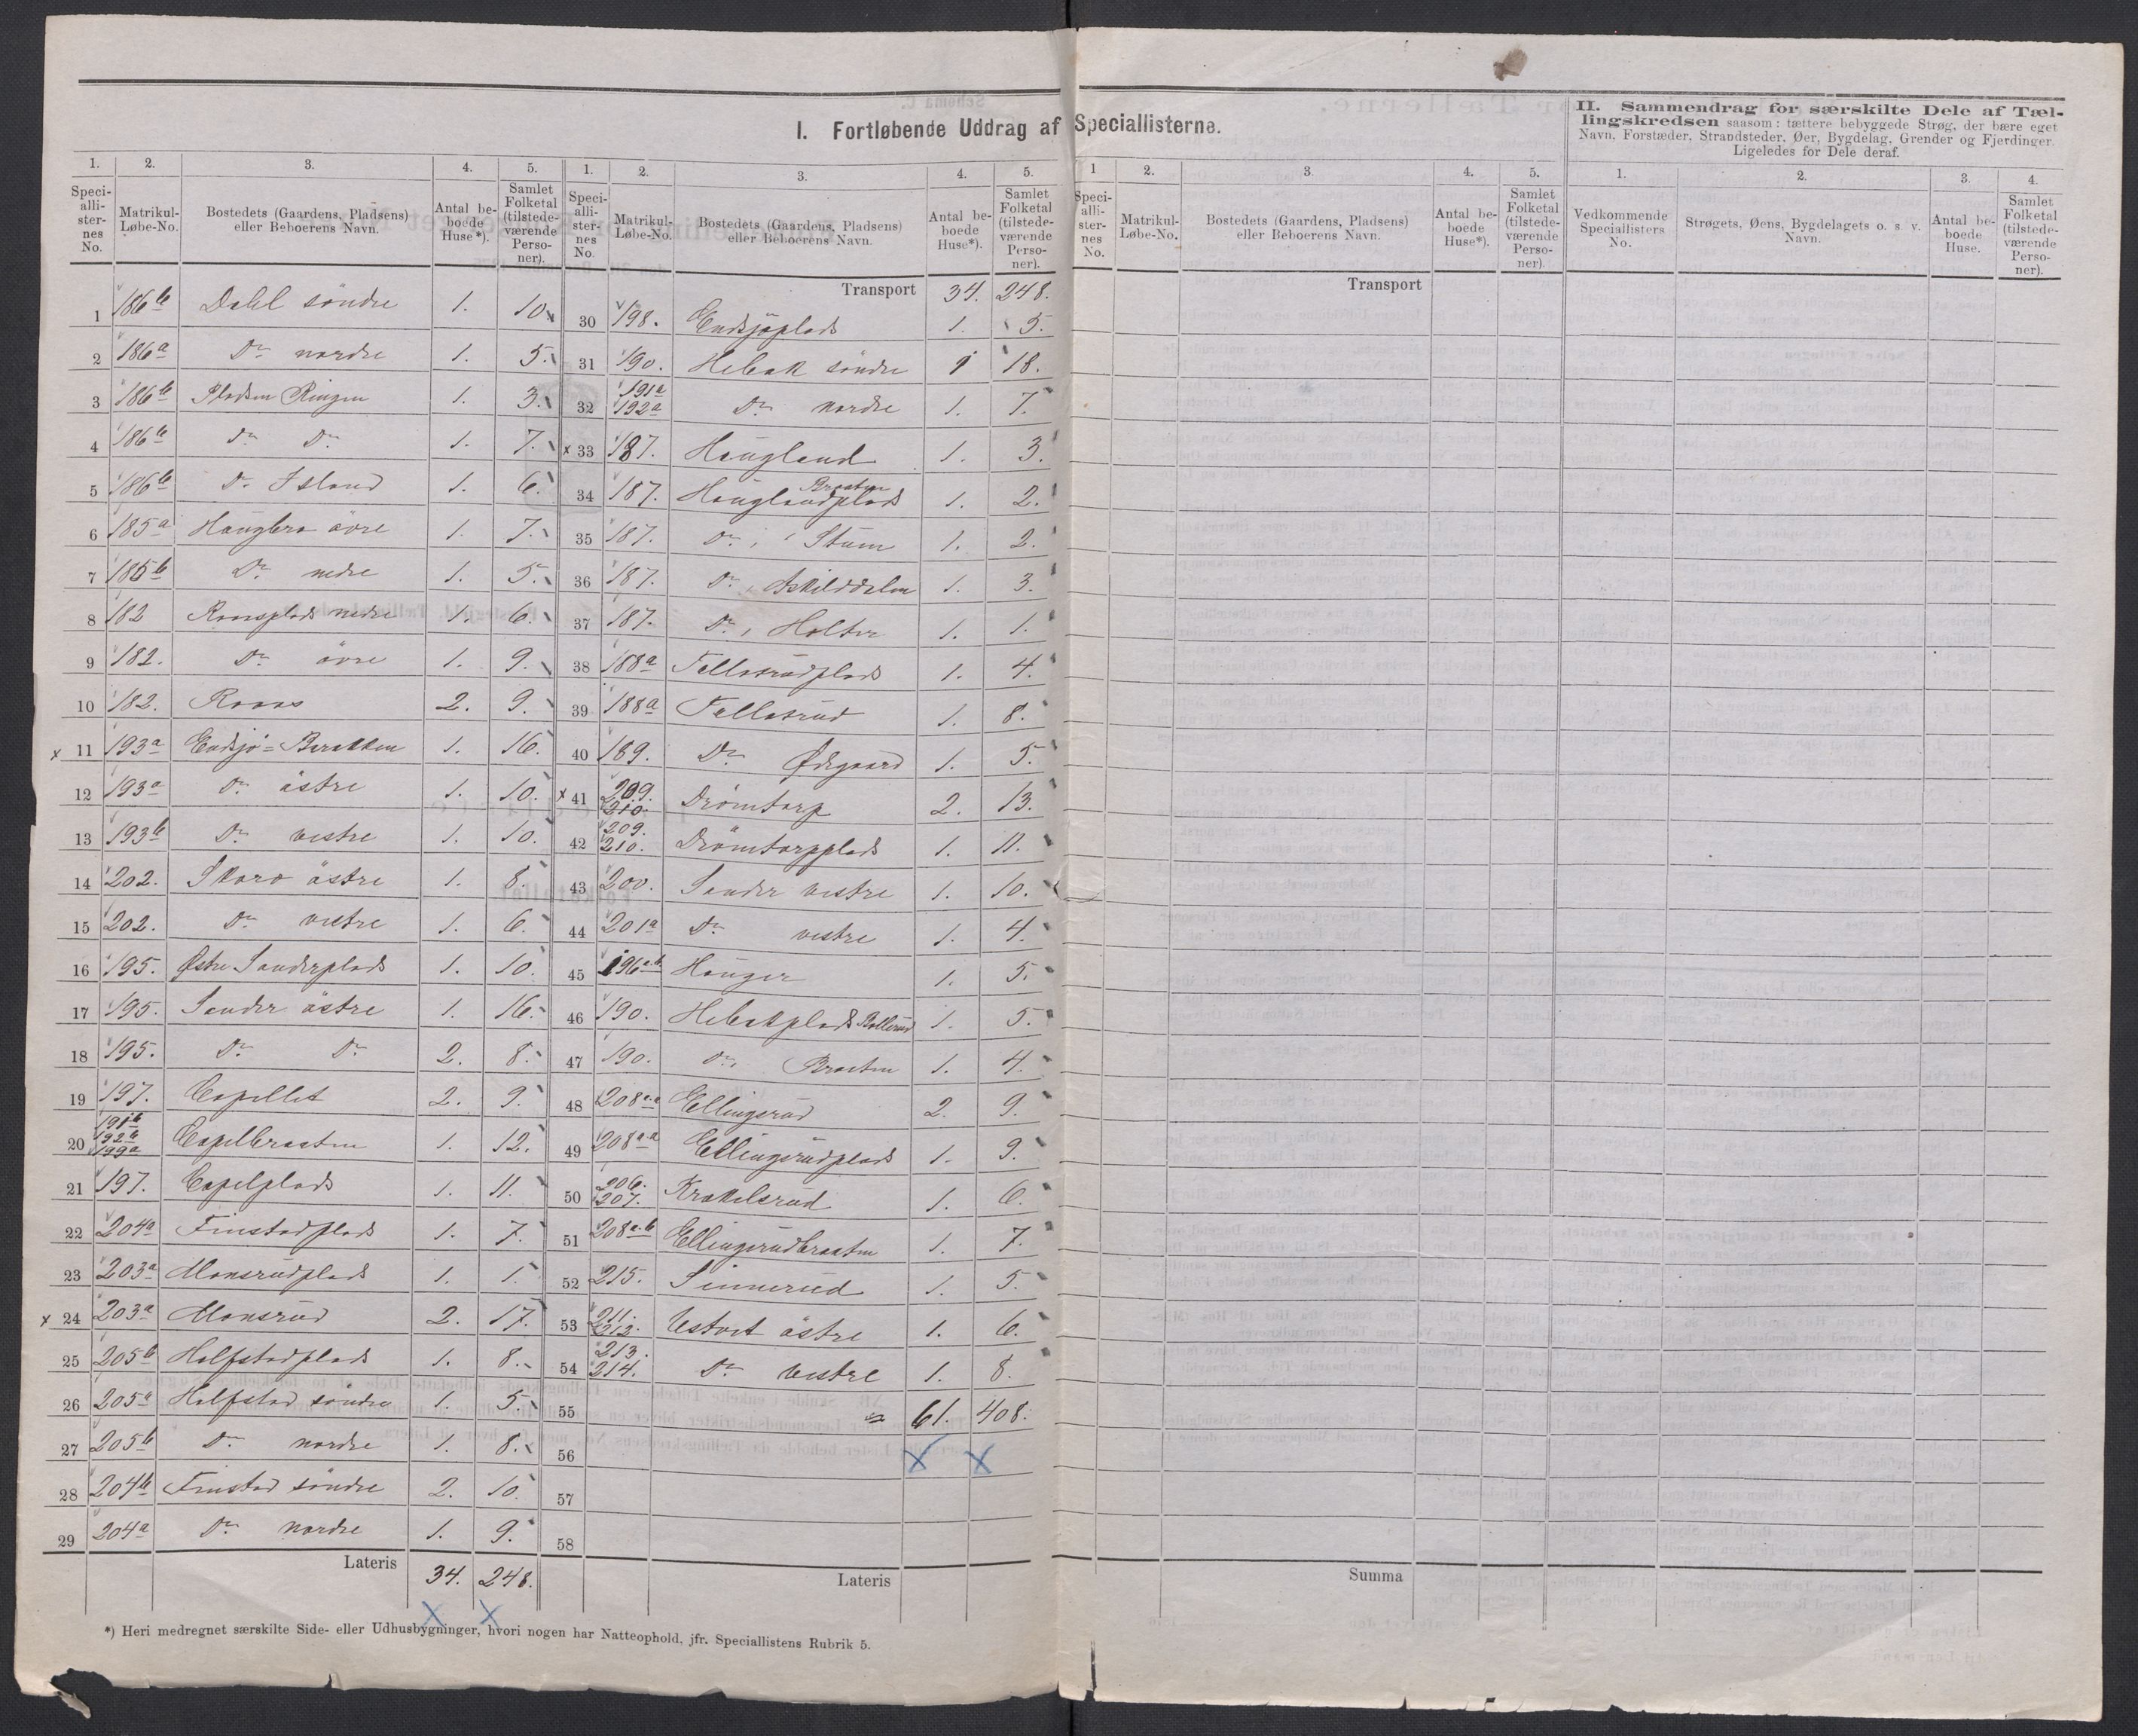 I. Fortløbende Uddrag af Speciallisterne.
1. 2. 3. 4. 5.
Speciallisternes No. Matrikul-Løbe-No. Bostedets (Gaardens, Pladsens) eller Beboerens Navn. Antal beboede Huse*). Samlet Folketal (tilstedeværende Personer).
1 186b Dahl söndre 1. 10.
2 186a Do nordre 1. 5.
3 186b Pladsen Ringen 1. 3.
4 186b do Do 1. 7.
5 186b Do Island 1. 6.
6 185a Haugbro övre 1. 7.
7 185b Do nedre 1. 5.
8 182 Raasplads nedre 1. 6.
9 182. Do övre 1. 9.
10 182. Raaas 2. 9.
x 11 193a Endsjö=Bakken 1. 16.
12 193a Do östre 1. 10.
13 193b Do vestre 1. 10.
14 202. Skoro östre 1. 8.
15 202. Do vestre 1. 6.
16 195. Østre Sanderplads 1. 10.
17 195. Sander östre 1. 16.
18 195. Do Do 2. 8.
19 197. Capellet 2. 9.
20 191b 192b 199a Capelbraaten 1. 12.
21 197. Capelplads 1. 11.
22 204a Finstadplads 1. 7.
23 203a Monsrudplads 1. 1.
x 24 203a Monsrud 2. 17.
25 205b Holfstadplads 1. 8.
26 205a Holfstad söndre 1. 5.
27 205b Do nordre 1. 8.
28 204b Finstad söndre 2. 10.
29 204a Do nordre 1. 9.
Lateris 34. 248.
1. 2. 3. 4. 5.
Speciallisternes No. Matrikul-Løbe-No. Bostedets (Gaardens, Pladsens) eller Beboerens Navn. Antal beboede Huse*). Samlet Folketal (tilstedeværende Personer).
Transport 34. 248.
30 198. Endsjöplads 1. 5.
31 190. Hebæk söndre 1 18.
32 191a 192a Do nordre 1. 7.
x 33 187. Haugland 1. 3.
34 187. Hauglandplads Braaten 1. 2.
35 187. Do, Stum 1. 2.
36 187. Do, Askilddalen 1. 3.
37 187. Do, Holter 1. 1.
38 188a Fellesrudplads 1. 4.
39 188a Fellesrud 1. 8.
40 189. Do Ødegaard 1. 5.
x 41 209. 210. Drömtorp 2. 13.
42 209. 210. Drömtorpplads 1. 11.
43 200. Sander vestre 1. 10.
44 201a Do vestre 1. 4.
45 196a-b Hauger 1. 5.
46 190. Hebækplads Bollerud 1. 5.
47 190. Do, Braaten 1. 4.
48 208a-a Ellingsrud 2. 9.
49 208a-a Ellingsrudplads 1. 9.
50 206. 207. Krakelsrud 1. 6.
51 208a-b Ellingsrudbraaten 1. 7.
52 215. Sinnerud 1. 5.
53 211. 212. Vestvet östre 1. 6.
54 213. 214. Do vestre 1. 8.
55 61. 408.
56
57
58
Lateris
1 2. 3. 4. 5.
Speciallisternes No. Matrikul-Løbe-No. Bostedets (Gaardens, Pladsens) eller Beboerens Navn. Antal beboede Huse*). Samlet Folketal (tilstedeværende Personer).
Transport
Summa
II. Sammendrag for særskilte Dele af Tæl-
lingskredsen saasom: tættere bebyggede Strøg, der bære eget
Navn, Forstæder, Strandsteder, Øer, Bygdelag, Grender og Fjerdinger.
Ligeledes for Dele deraf.
1. 2. 3. 4.
Vedkommende Speciallisters No. Strøgets, Øens, Bygdelagets o. s. v. Navn. Antal beboede Huse. Samlet Folketal (tilstedeværende Personer).
*) Heri medregnet særskilte Side- eller Udhusbygninger, hvori nogen har Natteophold, jfr. Speciallistens Rubrik 5.